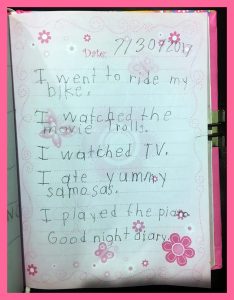 Date: 7/30/2017
I went to ride my
bike.
I watched the
movie Trolls.
I watched TV.
I ate yummy
samosas.
I played the piano
Good night diary.